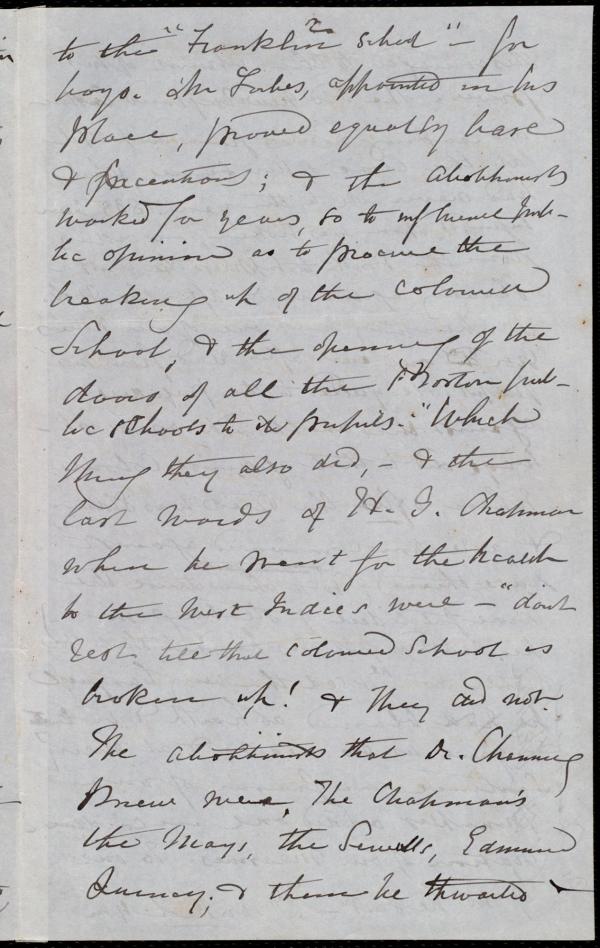 to the "Franklin School" – for
boys. Mr Forbes, appointed in his
place, proved equally base
& precentious; & the abolitionists
worked for years, so to influence pub-
lic opinion as to procure the
breaking up of the colored
School, & the opening of the
doors of all the Boston pub-
lic schools to its pupils. "Which
thing they also did, – & the
last words of H. G. Chapman
when he went for the health
to the West Indies were – "don't
rest till that colored School is
broken up! & they did not.
The abolitionists that Dr. Channing
knew were, The Chapman's
the Mays, the Sewells, Edmund
Quincy; & them he thwarted